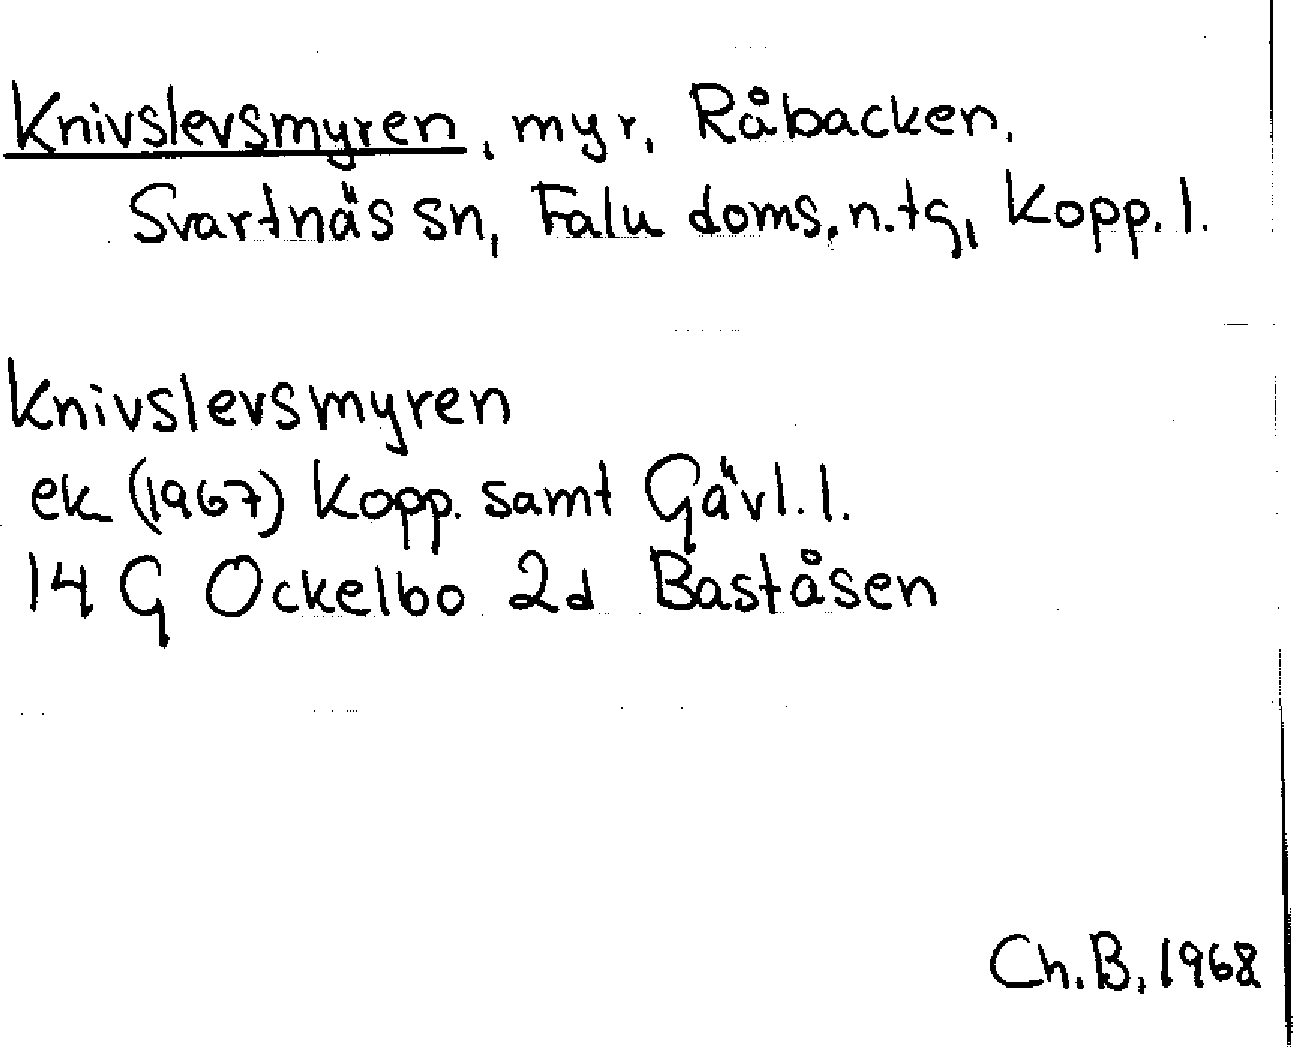 Knivslevsmyren, myr, Råbacken,
Svartnäs sn, Falu doms. n. tg, Kopp. l.
Knivslevsmyren
ek (1967) Kopp. samt Gävl. l.
14 G Ockelbo 2d Baståsen
Ch. B, 1968